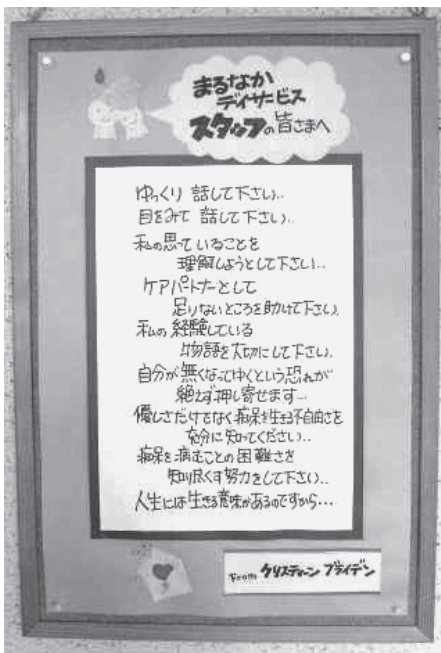 まるなか
デイサービス
スタッフの皆さまへ
ゆっくり 話して下さい..
目をみて 話して下さい..
私の思っていることを
理解しようとして下さい..
ケアパートナーとして
足りないところを助けて下さい.
私の経験している
物語を大切にして下さい.
自分が無くなってゆくという恐れが
絶えず押し寄せます...
優しさだけでなく痴呆を生きる不自由さを
充分に知ってください..
痴呆を病むことの困難さを
知り尽くす努力をして下さい..
人生には生きる意味があるのですから...
From クリスティーン ブライデン